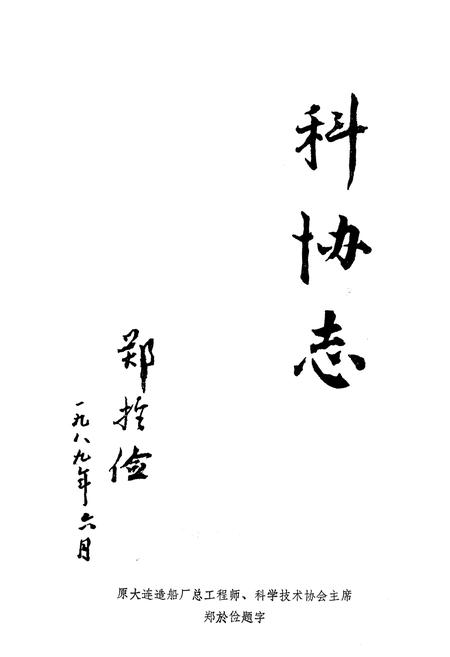 科协志
郑於俭
一九八九年六月
原大连造船厂总工程师、科学技术协会主席
郑於俭题字